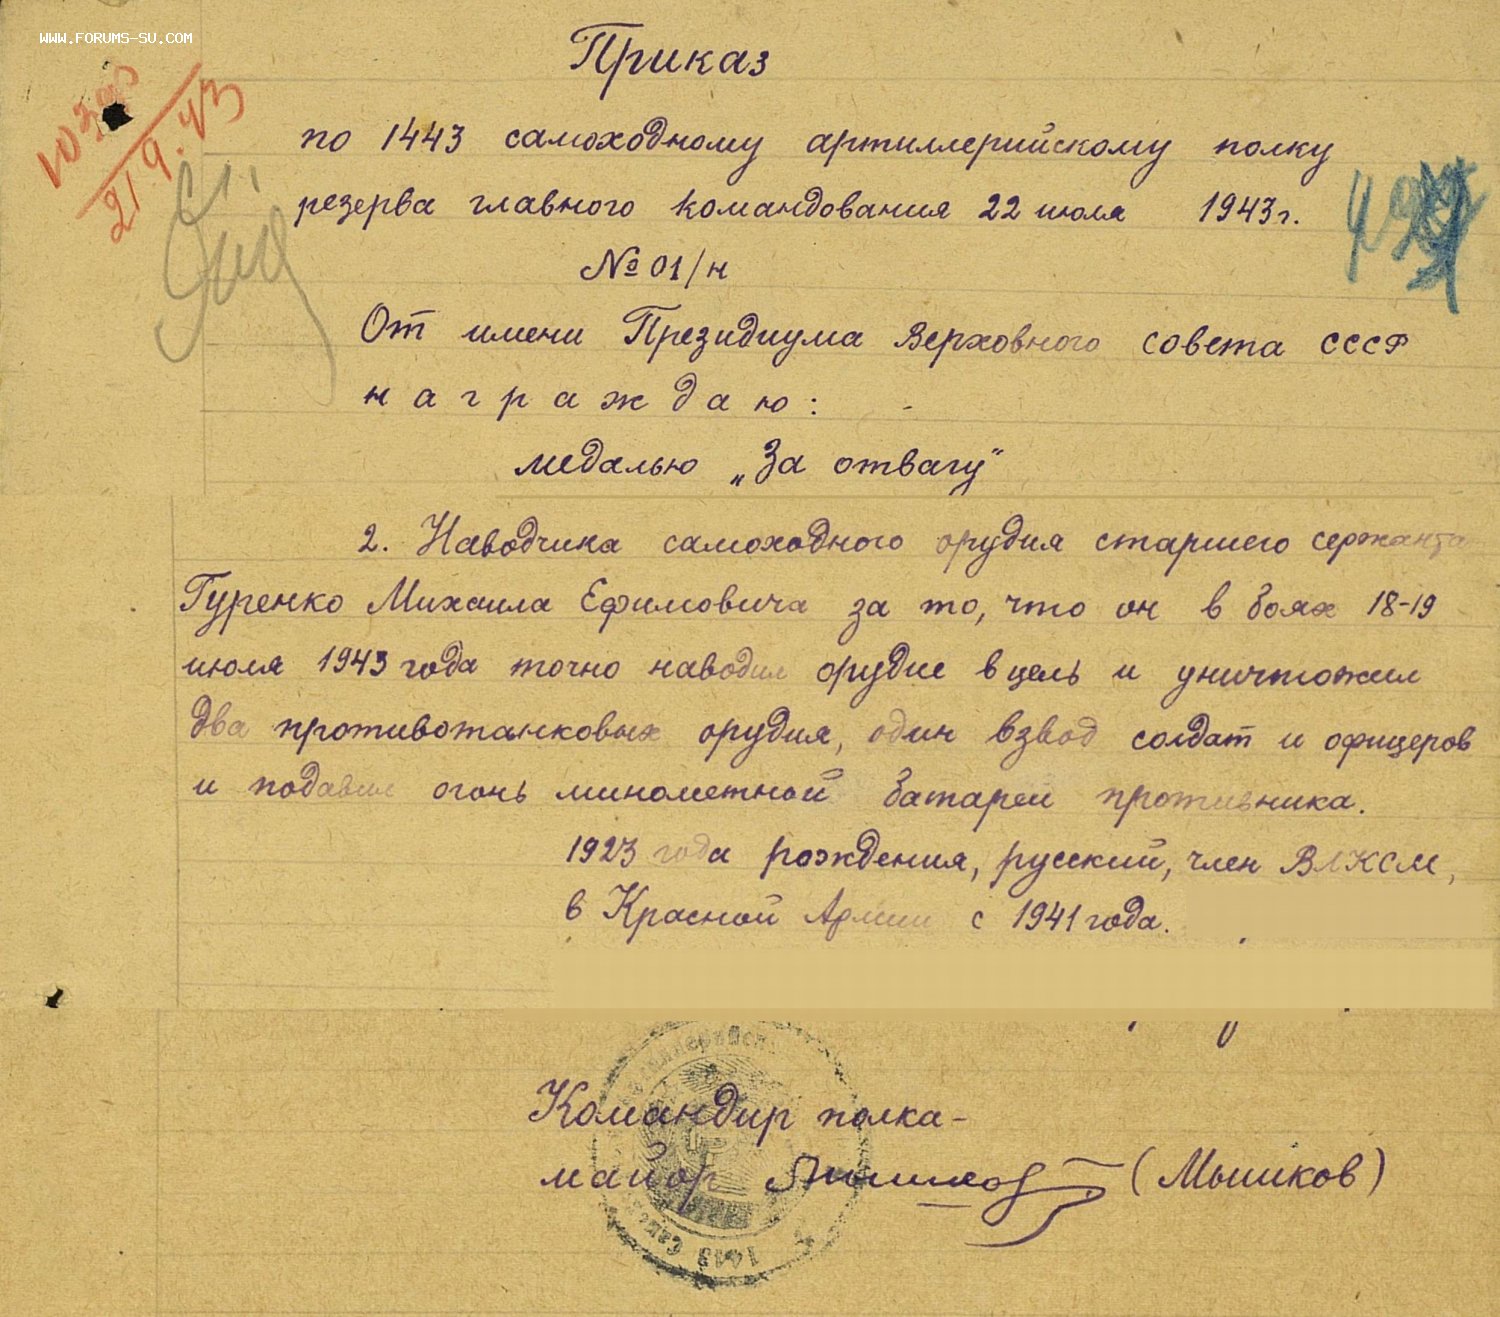 WWW.FORUMS-SU.COM
Приказ
21.9.43
по 1443 самоходному артиллерийскому полку
резерва главного командования 22 июля 1943 г.
№ 01/н
От имени Президиума Верховного совета СССР
награждаю:
медалью „За отвагу"
2. Наводчика самоходного орудия старшего сержанта
Гуренко Михаила Ефимовича за то, что он в боях 18-19
июля 1943 года точно наводил орудие в цель и уничтожил
два противотанковых орудия, один взвод солдат и офицеров
и подавил огонь минометной батареи противника.
1923 года рождения, русский, член ВЛКСМ,
в Красной Армии с 1941 года.
Командир полка-
майор (Мышков)